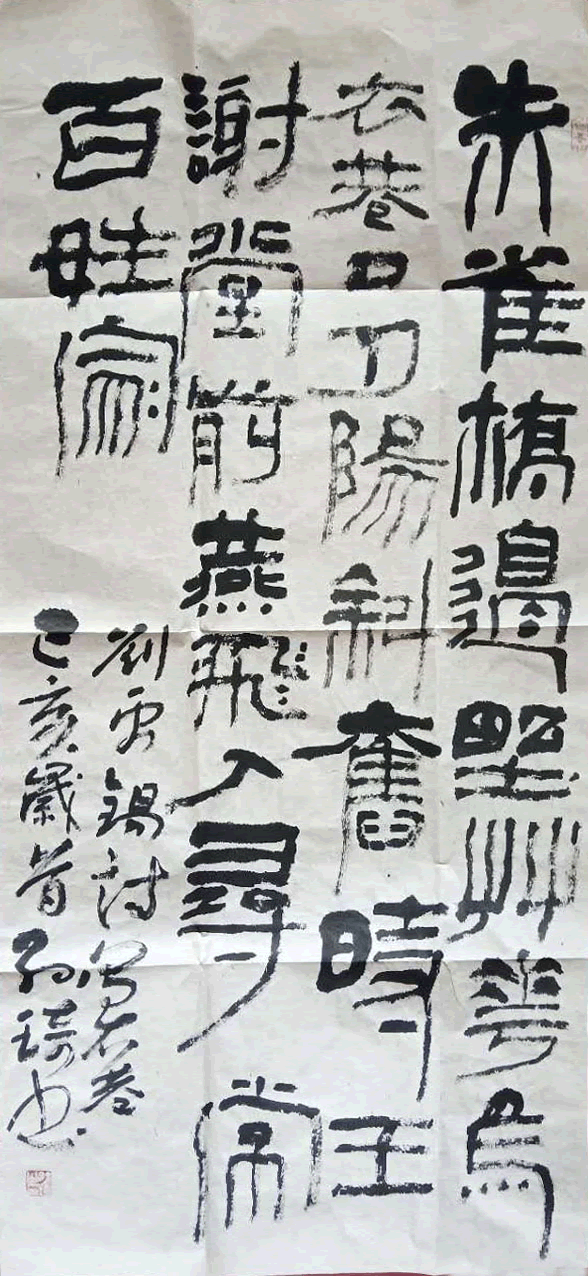 朱雀橋邊野艸華烏
衣巷口夕陽斜舊時王
謝堂前燕飛入尋常
百姓家
劉禹錫詩烏衣巷
己亥歲首孙琦书